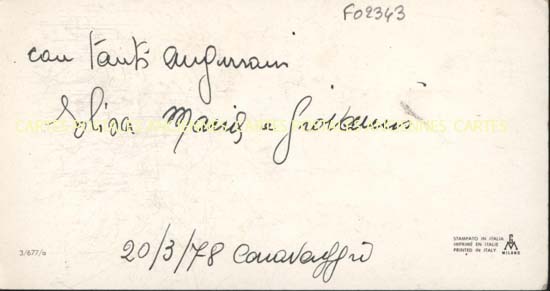 F02343
con tanti auguroni
Elisa Maria e Giovanni
CARTES CARTES
20/3/78 Caravaggio
3/677/a
STAMPATO IN ITALIA
IMPRIMÉ EN ITALIE
PRINTED IN ITALY
MILANO